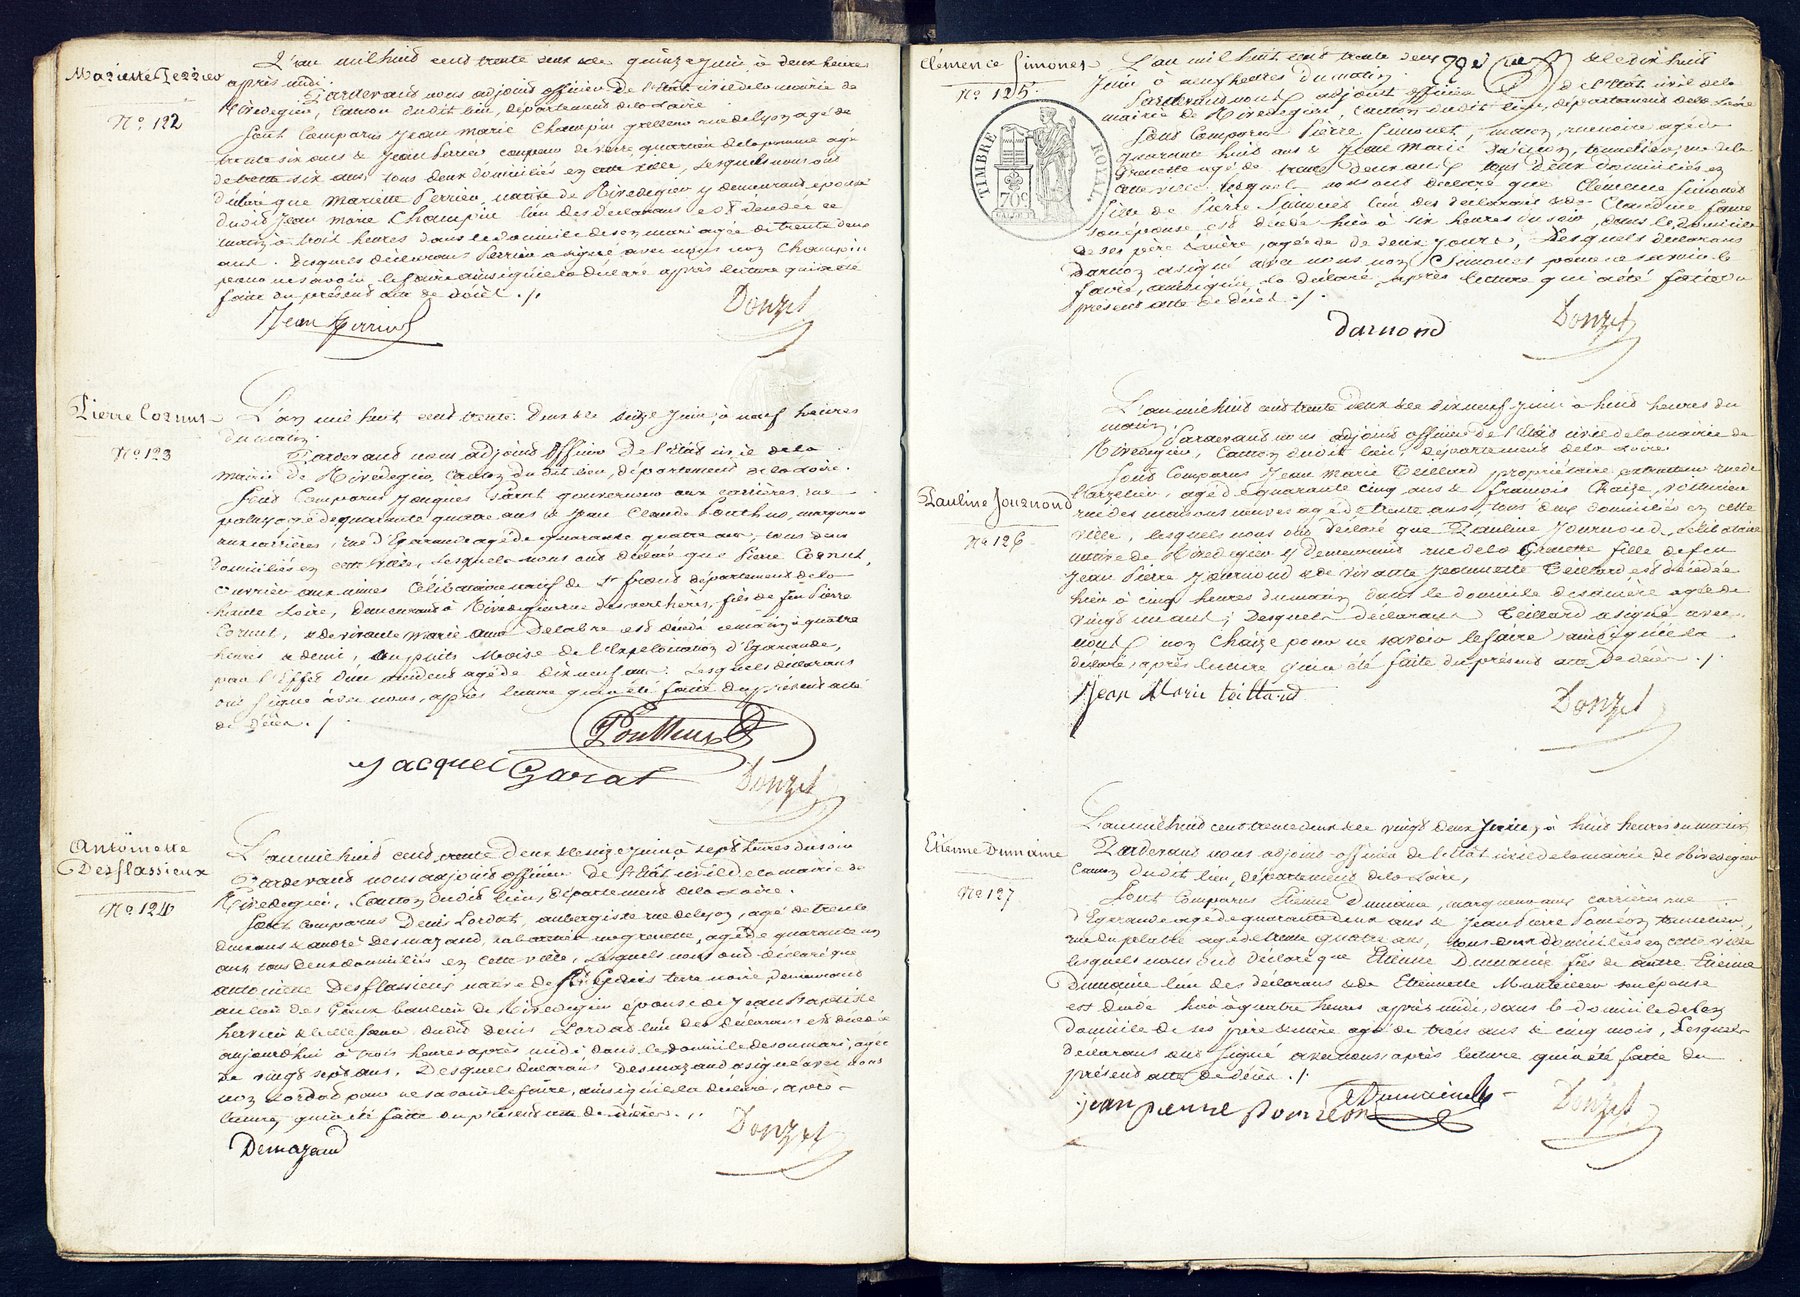 Mariette Perrier
N°. 122
L'an mil huit cent trente deux & le quinze juin à deux heures
après midi.
Pardevant nous adjoint officier de l'Etat civil de la mairie de
Rivedegier, Canton dudit lieu, département de la Loire
Sont comparus Jean Marie Champin rue de lyon agé de
trente six ans & Jean Perrier coupeur de verre quartier de la pomme agé
de trente six ans, tous deux domiciliés en cette ville, lesquels nous ont
déclaré que Mariette Perrier, native de Rivedegier y demeurant épouse
dudit Jean Marie Champin l'un des déclarans est décédée ce
matin à trois heures dans le domicile de son mari agée de trente deux
ans. Desquels déclarans Perrier a signé avec nous non Champin
pour ne savoir le faire ainsi qu'il a déclaré après lecture qui a été
faite du présent acte de décès ./.
Jean Perrier
Donzel
Pierre Cornut
N°. 123
L'an mil huit cent trente deux & le seize juin, à neuf heures
du matin.
Pardevant nous adjoint officier de l'Etat civil de la
mairie de Rivedegier, Canton du dit lieu, département de la Loire.
Sont Comparus Jacques Garat gouverneur aux carrières, rue
paluy agé de quarante quatre ans & Jean Claude Ponthus, marqueur
aux carrières, rue d'Egarande agé de quarante quatre ans, tous deux
domiciliés en cette ville, lesquels nous ont déclaré que Pierre Cornut,
ouvrier aux mines Célibataire natif de St département de la
haute Loire, demeurant à Rivedegier rue des verchères, fils de feu Pierre
Cornut, & de vivante Marie Anne Delabre est décédé ce matin à quatre
heures & demi, au puits Moïse de l'Exploitation d'Egarande,
par l'Effet d'un accident agé de dix neuf ans. Lesquels déclarans
ont signé avec nous, après lecture qui a été faite du présent acte
de décès ./.
Ponthus
Jacques Garat
Donzel
Antoinette
Desflassieux
N°. 124
L'an mil huit cent trente deux & le seize juin à sept heures du soir
Pardevant nous adjoint officier de l'Etat civil de la mairie de
Rivedegier, Canton dudit lieu, département de la Loire.
Sont comparus Denis Lordat, aubergiste rue de lyon, agé de trente
deux ans & andré Desmazand, cabaretier rue grenette, agé de quarante un
ans tous deux domiciliés en cette ville, lesquels nous ont déclaré que
antoinette Desflassieux native de St Genis terre noire, demeurant
au lieu des banlieu de Rivedegier épouse de Jean Baptiste
hervier & belle sœur dudit Denis Lordat l'un des déclarans est décédée
aujourd'hui à trois heures après midi dans le domicile de son mari, agée
de vingt sept ans. Desquels déclarans Desmazand a signé avec nous
non Lordat pour ne savoir le faire, ainsi qu'il a déclaré, après
lecture qui a été faite du présent acte de décès ./.
Demazand
Donzel
Clémence Simonet
N°. 125.
TIMBRE ROYAL
70c
L'an mil huit cent trente deux & le dix huit
Juin à neuf heures du matin.
Pardevant nous adjoint officier de l'état civil de la
mairie de Rivedegier, Canton dudit lieu, département de la Loire
Sont Comparus Pierre Simonet, maçon, agé de
quarante huit ans & Jean Marie Darnon, tonnelier, rue de la
Grenette agé de trente deux ans tous deux domiciliés en
cette ville, lesquels nous ont déclaré que Clémence Simonet
fille de Pierre Simonet l'un des déclarans & de Claudine faure
son épouse, est décédé hier à six heures du soir, dans le domicile
de ses père & mère, agée de deux jours, Desquels déclarans
Darnon a signé avec nous non Simonet pour ne savoir le
faire, ainsi qu'il a déclaré, après lecture qui a été faite du
présent acte de décès ./.
Darnond
Donzel
Pauline Journond
N°. 126
L'an mil huit cent trente deux & le dix neuf juin à huit heures du
matin.
Pardevant nous adjoint officier de l'Etat civil de la mairie de
Rivedegier, Canton dudit lieu, département de la Loire
Sont Comparus Jean Marie Teillard propriétaire extracteur rue de
agé de quarante cinq ans & françois Chaize, voiturier
rue des maisons neuves agé de trente ans, tous deux domiciliés en cette
ville, lesquels nous ont déclaré que Pauline Journond, célibataire
native de Rivedegier y demeurant rue de la Grenette fille de feu
Jean Pierre Journond & de vivante Jeannette Teillard, est décédée
hier à cinq heures du matin dans le domicile de sa mère agée de
vingt un ans; Desquels déclarans Teillard a signé avec
nous non Chaize pour ne savoir le faire ainsi qu'il a
déclaré, après lecture qui a été faite du présent acte de décès ./.
Jean Marie teillard
Donzel
Etienne Dumaine
N°. 127
L'an mil huit cent trente deux & le vingt deux Juin, à huit heures du matin
Pardevant nous adjoint officier de l'Etat civil de la mairie de Rivedegier
Canton dudit lieu, département de la Loire,
Sont comparus Etienne Dumaine, marqueur aux carrières rue
d'Egarande agé de quarante deux ans & Jean Pierre Poncon tonnelier,
rue agé de trente quatre ans, tous deux domiciliés en cette ville
lesquels nous ont déclaré que Etienne Dumaine fils de autre Etienne
Dumaine l'un des déclarans & de Etiennette Monteillier son épouse
est décédé hier à quatre heures après midi, dans le domicile de
domicile de ses père & mère agé de trois ans & cinq mois, Lesquels
déclarans ont signé avec nous après lecture qui a été faite du
présent acte de décès ./.
jean pierre
Dumaine
Donzel